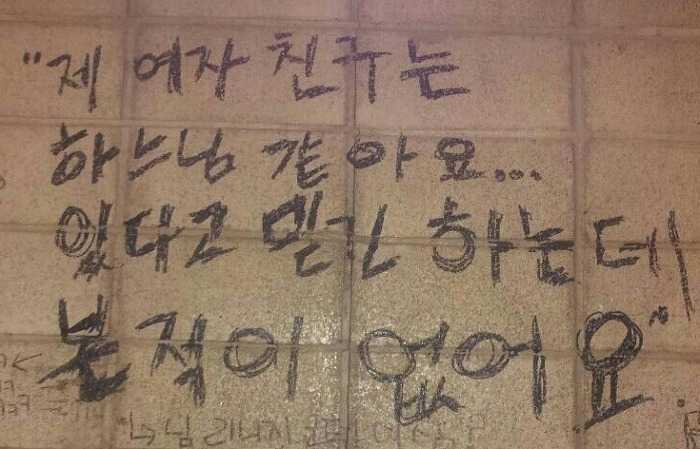 "제 여자 친구는
하느님 같아요...
있다고 믿긴 하는데
본적이 없어요"